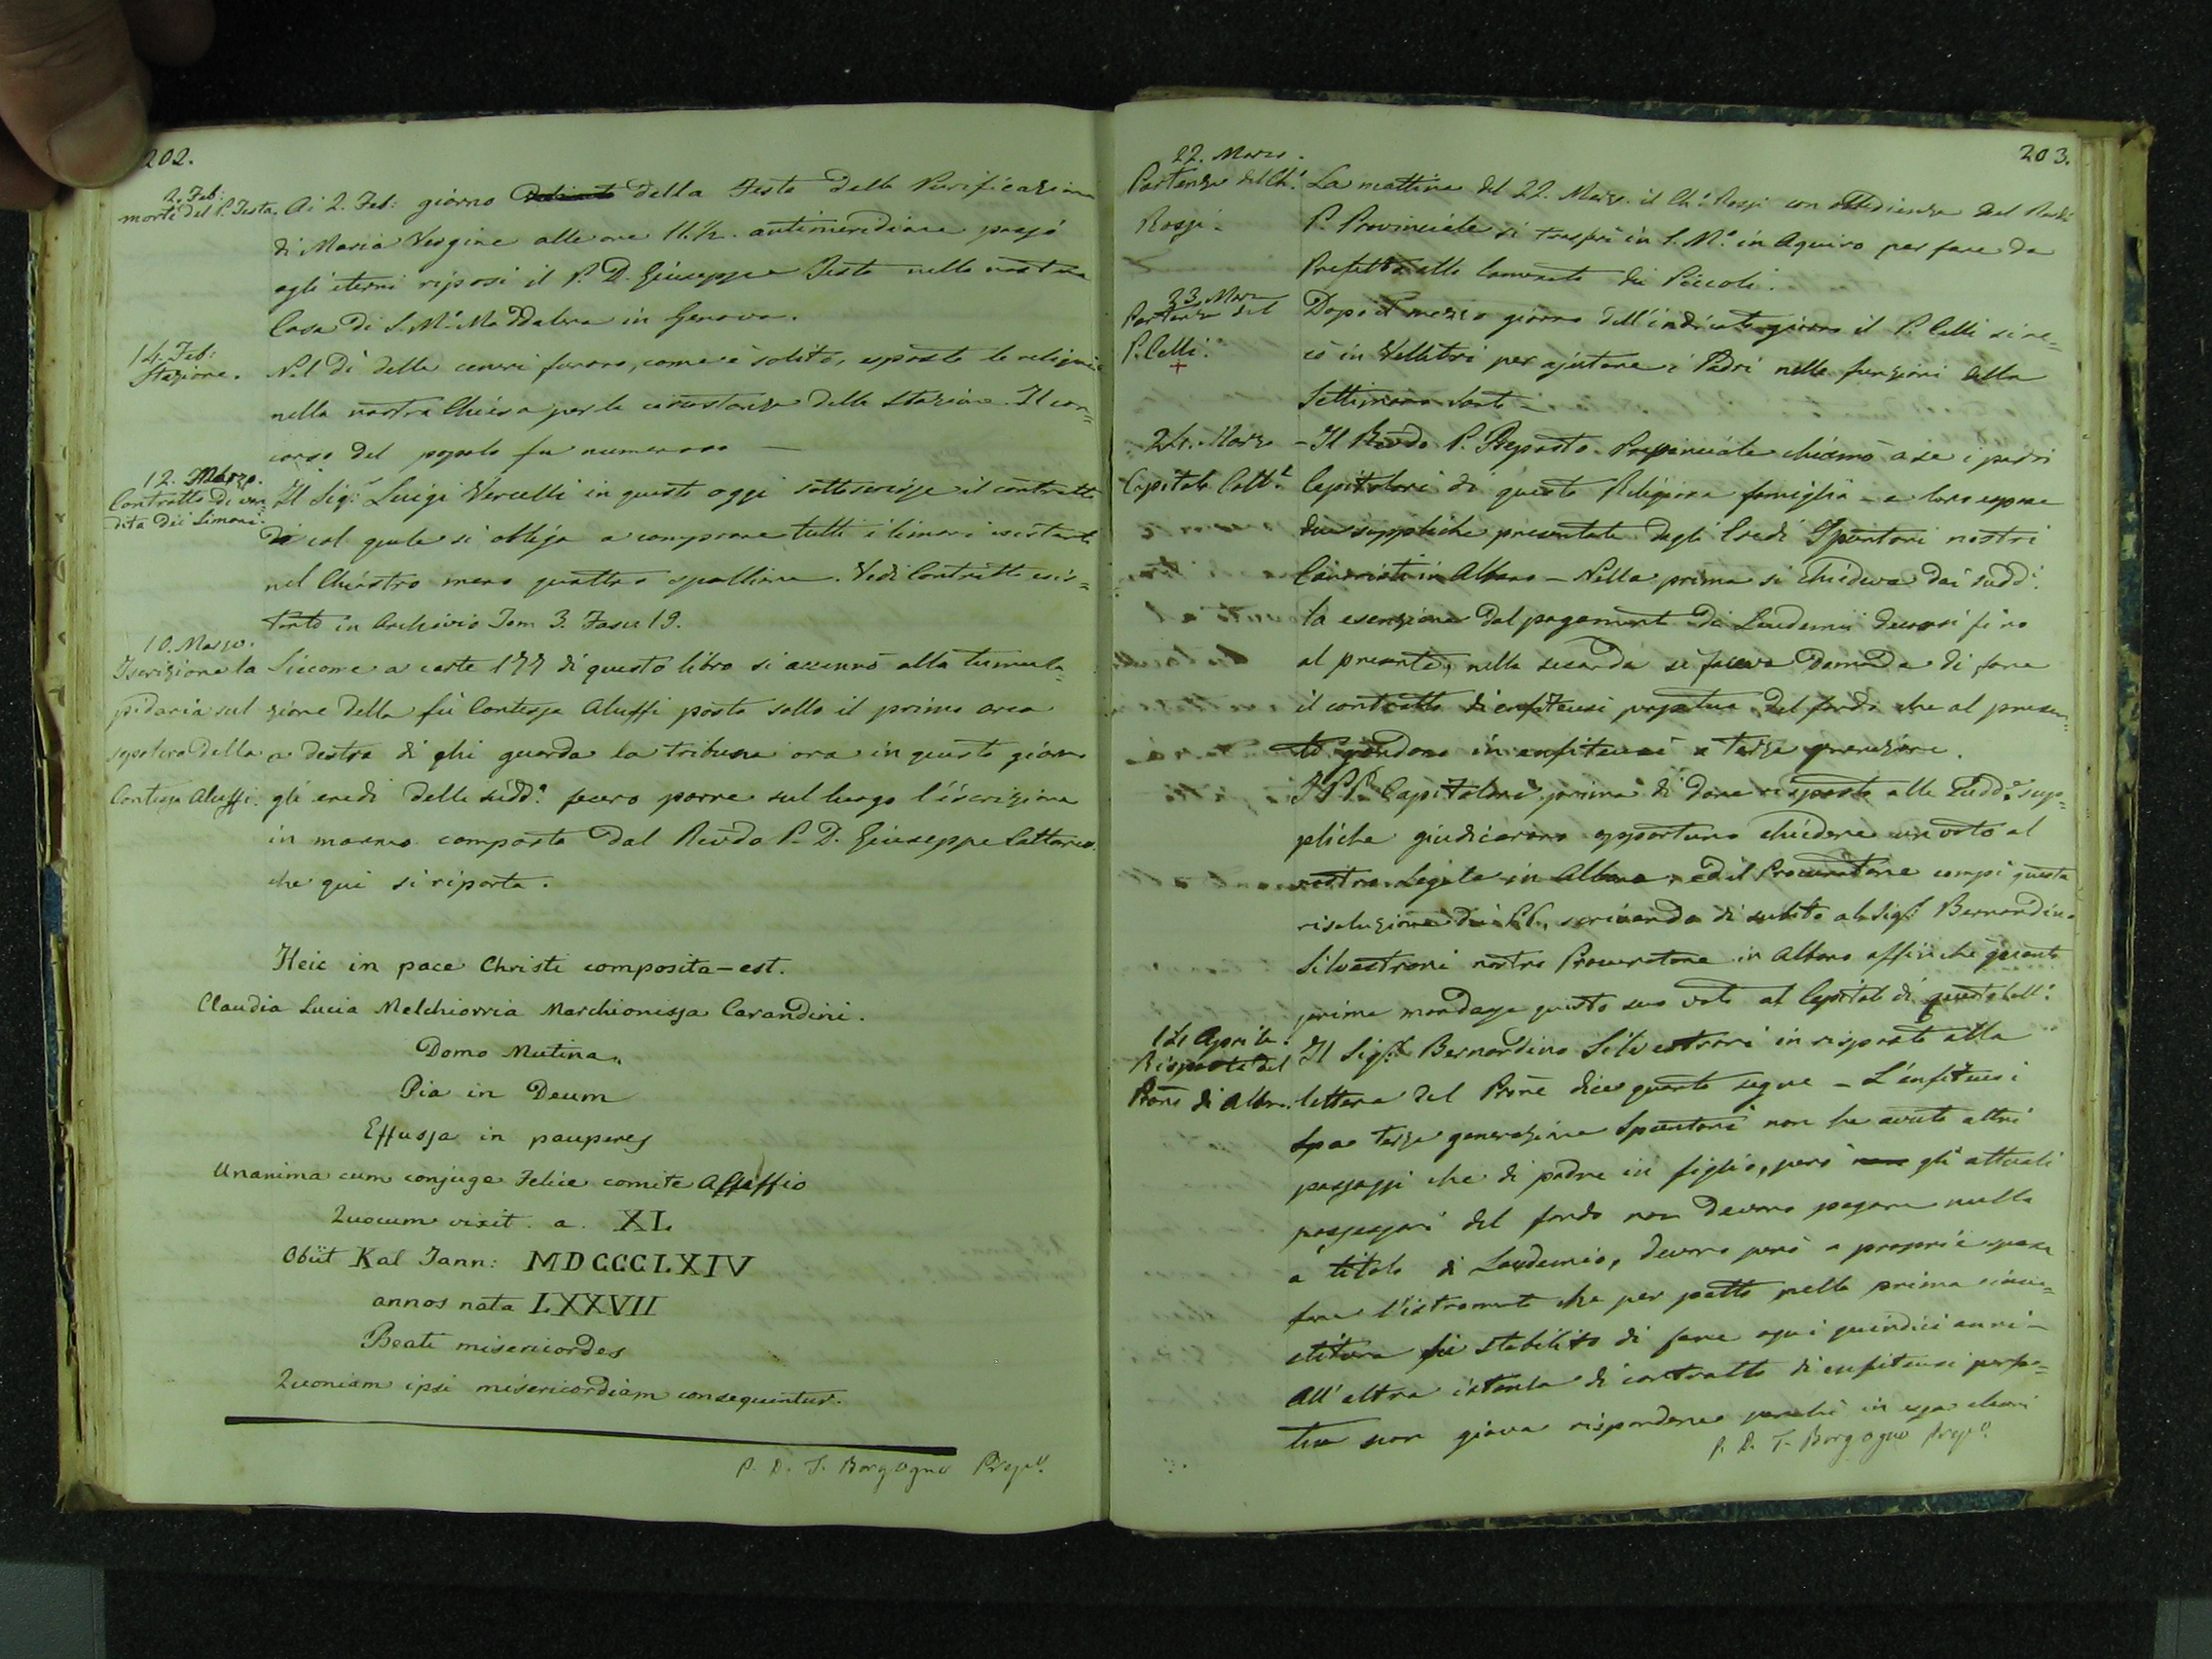 202.
2. Feb:
morte del P. Testa.
Ai 2. Feb: giorno della Festa della Purificazione
di Maria Vergine alle ore 11.½. antimeridiane passò
agli eterni riposi il P. D. Giuseppe Testa nella nostra
Casa di S. Mª Maddalena in Genova.
14. Feb:
Stazione.
Nel dì delle ceneri furono, come è solito, esposte le reliquie
nella nostra Chiesa per la circostanza della Stazione. Il con=
corso del popolo fu numeroso —
12. Marzo.
Contratto di ven=
dita dei Limoni.
Il Sig.r Luigi Vercelli in questo oggi sottoscrisse il contratto
col quale si obbliga a comprare tutti i limoni esistenti
nel Chiostro meno quattro spalliere. Vedi Contratto esis=
tente in Archivio Tom 3. Fasc 19.
10. Marzo.
Iscrizione la
pidaria sul
sepolcro della
Contessa Aluffi.
Siccome a carte 177 di questo libro si accennò alla tumula=
zione della fù Contessa Aluffi posta sotto il primo arco
a destra di chi guarda la tribuna ora in questo giorno
gli eredi della sudd.a fecero porre sul luogo l'iscrizione
in marmo composta dal Revdo P. D. Giuseppe Cattaneo.
che qui si riporta.
Heic in pace Christi composita-est.
Claudia Lucia Melchiorria Marchionissa Carandini.
Domo Mutina.
Pia in Deum
Effussa in pauperes
Unanima cum conjuge Felice comite Aluffio
Quocum vixit. a. XL
Obiit Kal Jann: MDCCCLXIV
annos nata LXXVII
Beati misericordes
Quoniam ipsi misericordiam consequentur.
P. D. T. Borgogno Prep.o
203.
22. Marzo.
Partenza del Ch.o
Rossi.
La mattina del 22. Marzo il Ch.o Rossi con obbedienza del
P. Provinciale si trasferì in S. M.a in Aquiro per fare da
Prefetto alla Camerata dei Piccoli.
23. Marzo
Partenza del
P. Celli.
+
Dopo il mezzo giorno dell'indicato giorno il P. Celli si re=
cò in Velletri per ajutare i Padri nelle funzioni della
Settimana Santa —
24. Marzo
Capitolo Coll.e
— Il Revdo P. Preposto Provinciale chiamò a se i padri
Capitolari di questa Religiosa famiglia — e loro espose
due suppliche presentate dagli Eredi Spuntoni nostri
in Albano — Nella prima si chiedeva dai sudd.i
la esenzione dal pagamento di Laudemii decorsi fino
al presente, nella seconda si faceva domanda di fare
il contratto di enfiteusi perpetua del fondo che al presen=
te godono in enfiteusi a terza generazione.
I PP. Capitolari, prima di dare risposta alle sudd.e sup=
pliche giudicarono opportuno chiedere un voto al
nostro Legale in Albano, ed il Procuratore compì questa
risoluzione dei PP., scrivendo di subito al Sig.r Bernardino
Silvestroni nostro Procuratore in Albano affinchè quanto
prima mandasse questo suo voto al Capitolo di questo Coll.o
14 Aprile.
Risposta del
Prõre di Albno.
Il Sig.r Bernardino Silvestroni in risposta alla
lettera del Prõre dice quanto segue — L'enfiteusi
terza generazione Spuntoni non ha avuto altri
passaggi che di padre in figlio, però gli attuali
possessori del fondo non devono pagare nulla
a titolo di Laudemio, devono però a proprie spese
fare l'istromento che per patto nella prima
fù stabilito di fare ogni quindici anni —
All'altra istanza di contratto di enfiteusi perpe=
tua non giova rispondere perchè in
P. D. T. Borgogno Prep.o